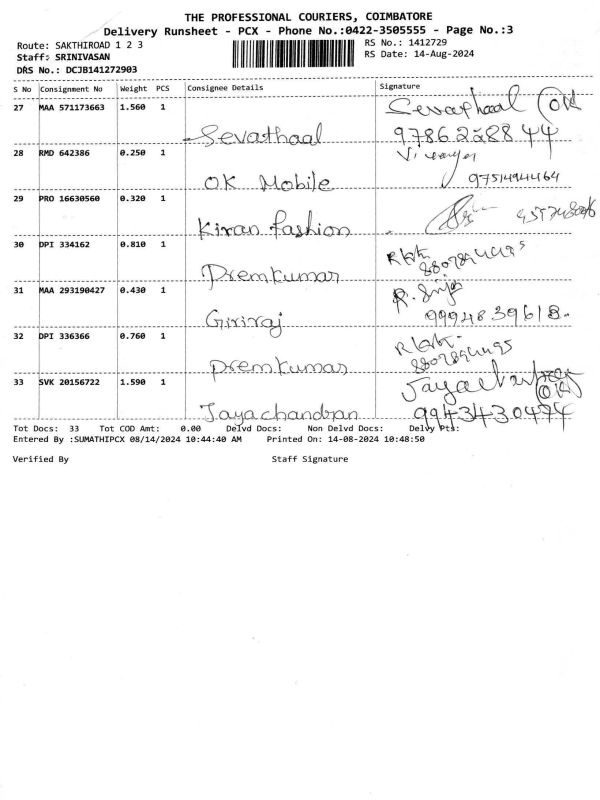 THE PROFESSIONAL COURIERS, COIMBATORE
Delivery Runsheet - PCX - Phone No.:0422-3505555 - Page No.:3
Route: SAKTHIROAD 1 2 3
RS No.: 1412729
Staff: SRINIVASAN
RS Date: 14-Aug-2024
DRS No.: DCJB141272903
S No Consignment No Weight PCS Consignee Details Signature
27 MAA 571173663 1.560 1 Sevathaal OK
9786228844
28 RMD 642386 0.250 1 OK Mobile
9751494464
29 PRO 16630560 0.320 1 Kiran fashion
30 DPI 334162 0.810 1 Premkumar
31 MAA 293190427 0.430 1 Giriraj
9994839618.
32 DPI 336366 0.760 1 Premkumar
33 SVK 20156722 1.590 1 Jayachandran OK
9943430474
Tot Docs: 33 Tot COD Amt: 0.00 Delvd Docs: Non Delvd Docs: Delvy Pts:
Entered By :SUMATHIPCX 08/14/2024 10:44:40 AM Printed On: 14-08-2024 10:48:50
Verified By Staff Signature